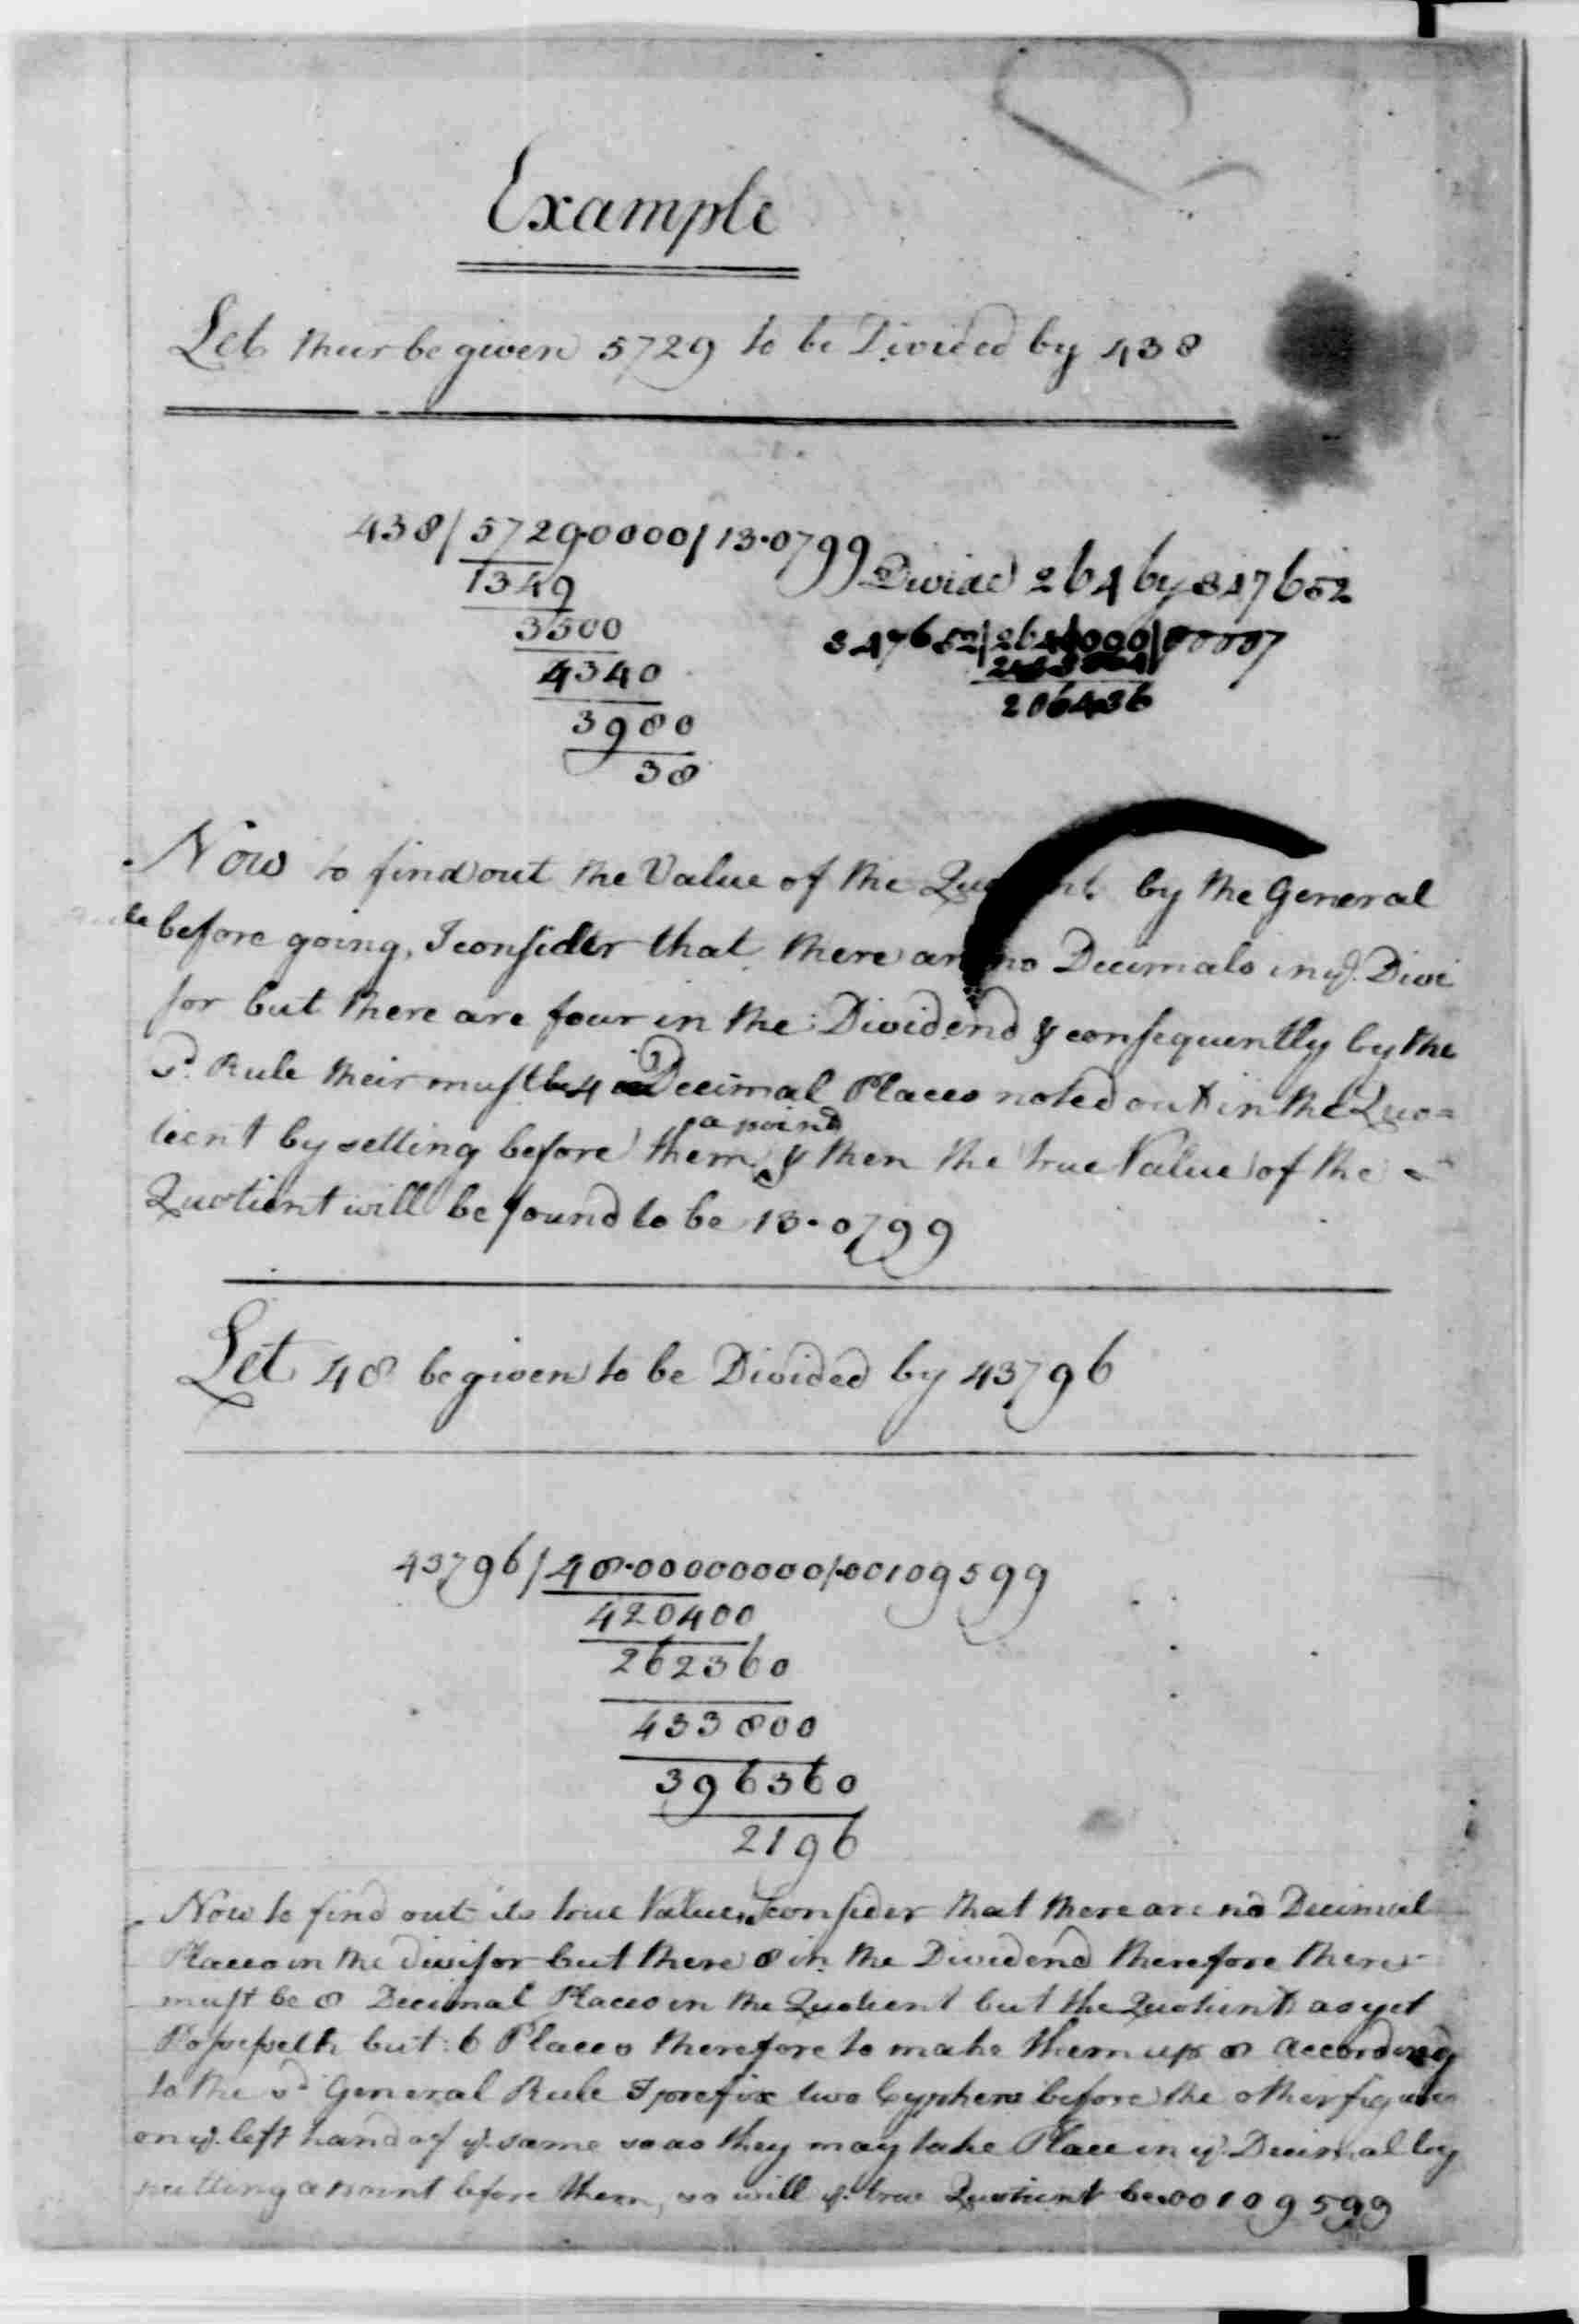 Example
Let their be given 5729 to be Divided by 438
438/5729.0000/13.0799
1349
3500
4340
3980
38
Divide 264 by 347652
347652/2640000/00007
206436
Now to find out the Value of the by the General
Rule before going, I consider that there are no Decimals in ye. Divi
sor but there are four in the Dividend & consequently by the
sd. Rule their must be 4 Decimal Places noted out in the Quo=
tient by setting before them a point & then the true Value of the
Quotient will be found to be 13.0799
Let 48 be given to be Divided by 43796
43796/48.00000000/.00109599
420400
262360
433800
396360
2196
Now to find out its true Value, I consider that there are no Decimal
Places in the divisor but there 8 in the Dividend therefore there
must be 8 Decimal Places in the Quotient but the Quotient as yet
Possesseth but 6 Places therefore to make them up 8 according
to the sd General Rule I prefix two Cyphers before the other figures
on ye. left hand of ye. same so as they may take Place in ye. Decimal by
putting a point before them, so will ye. true Quotient be .00109599